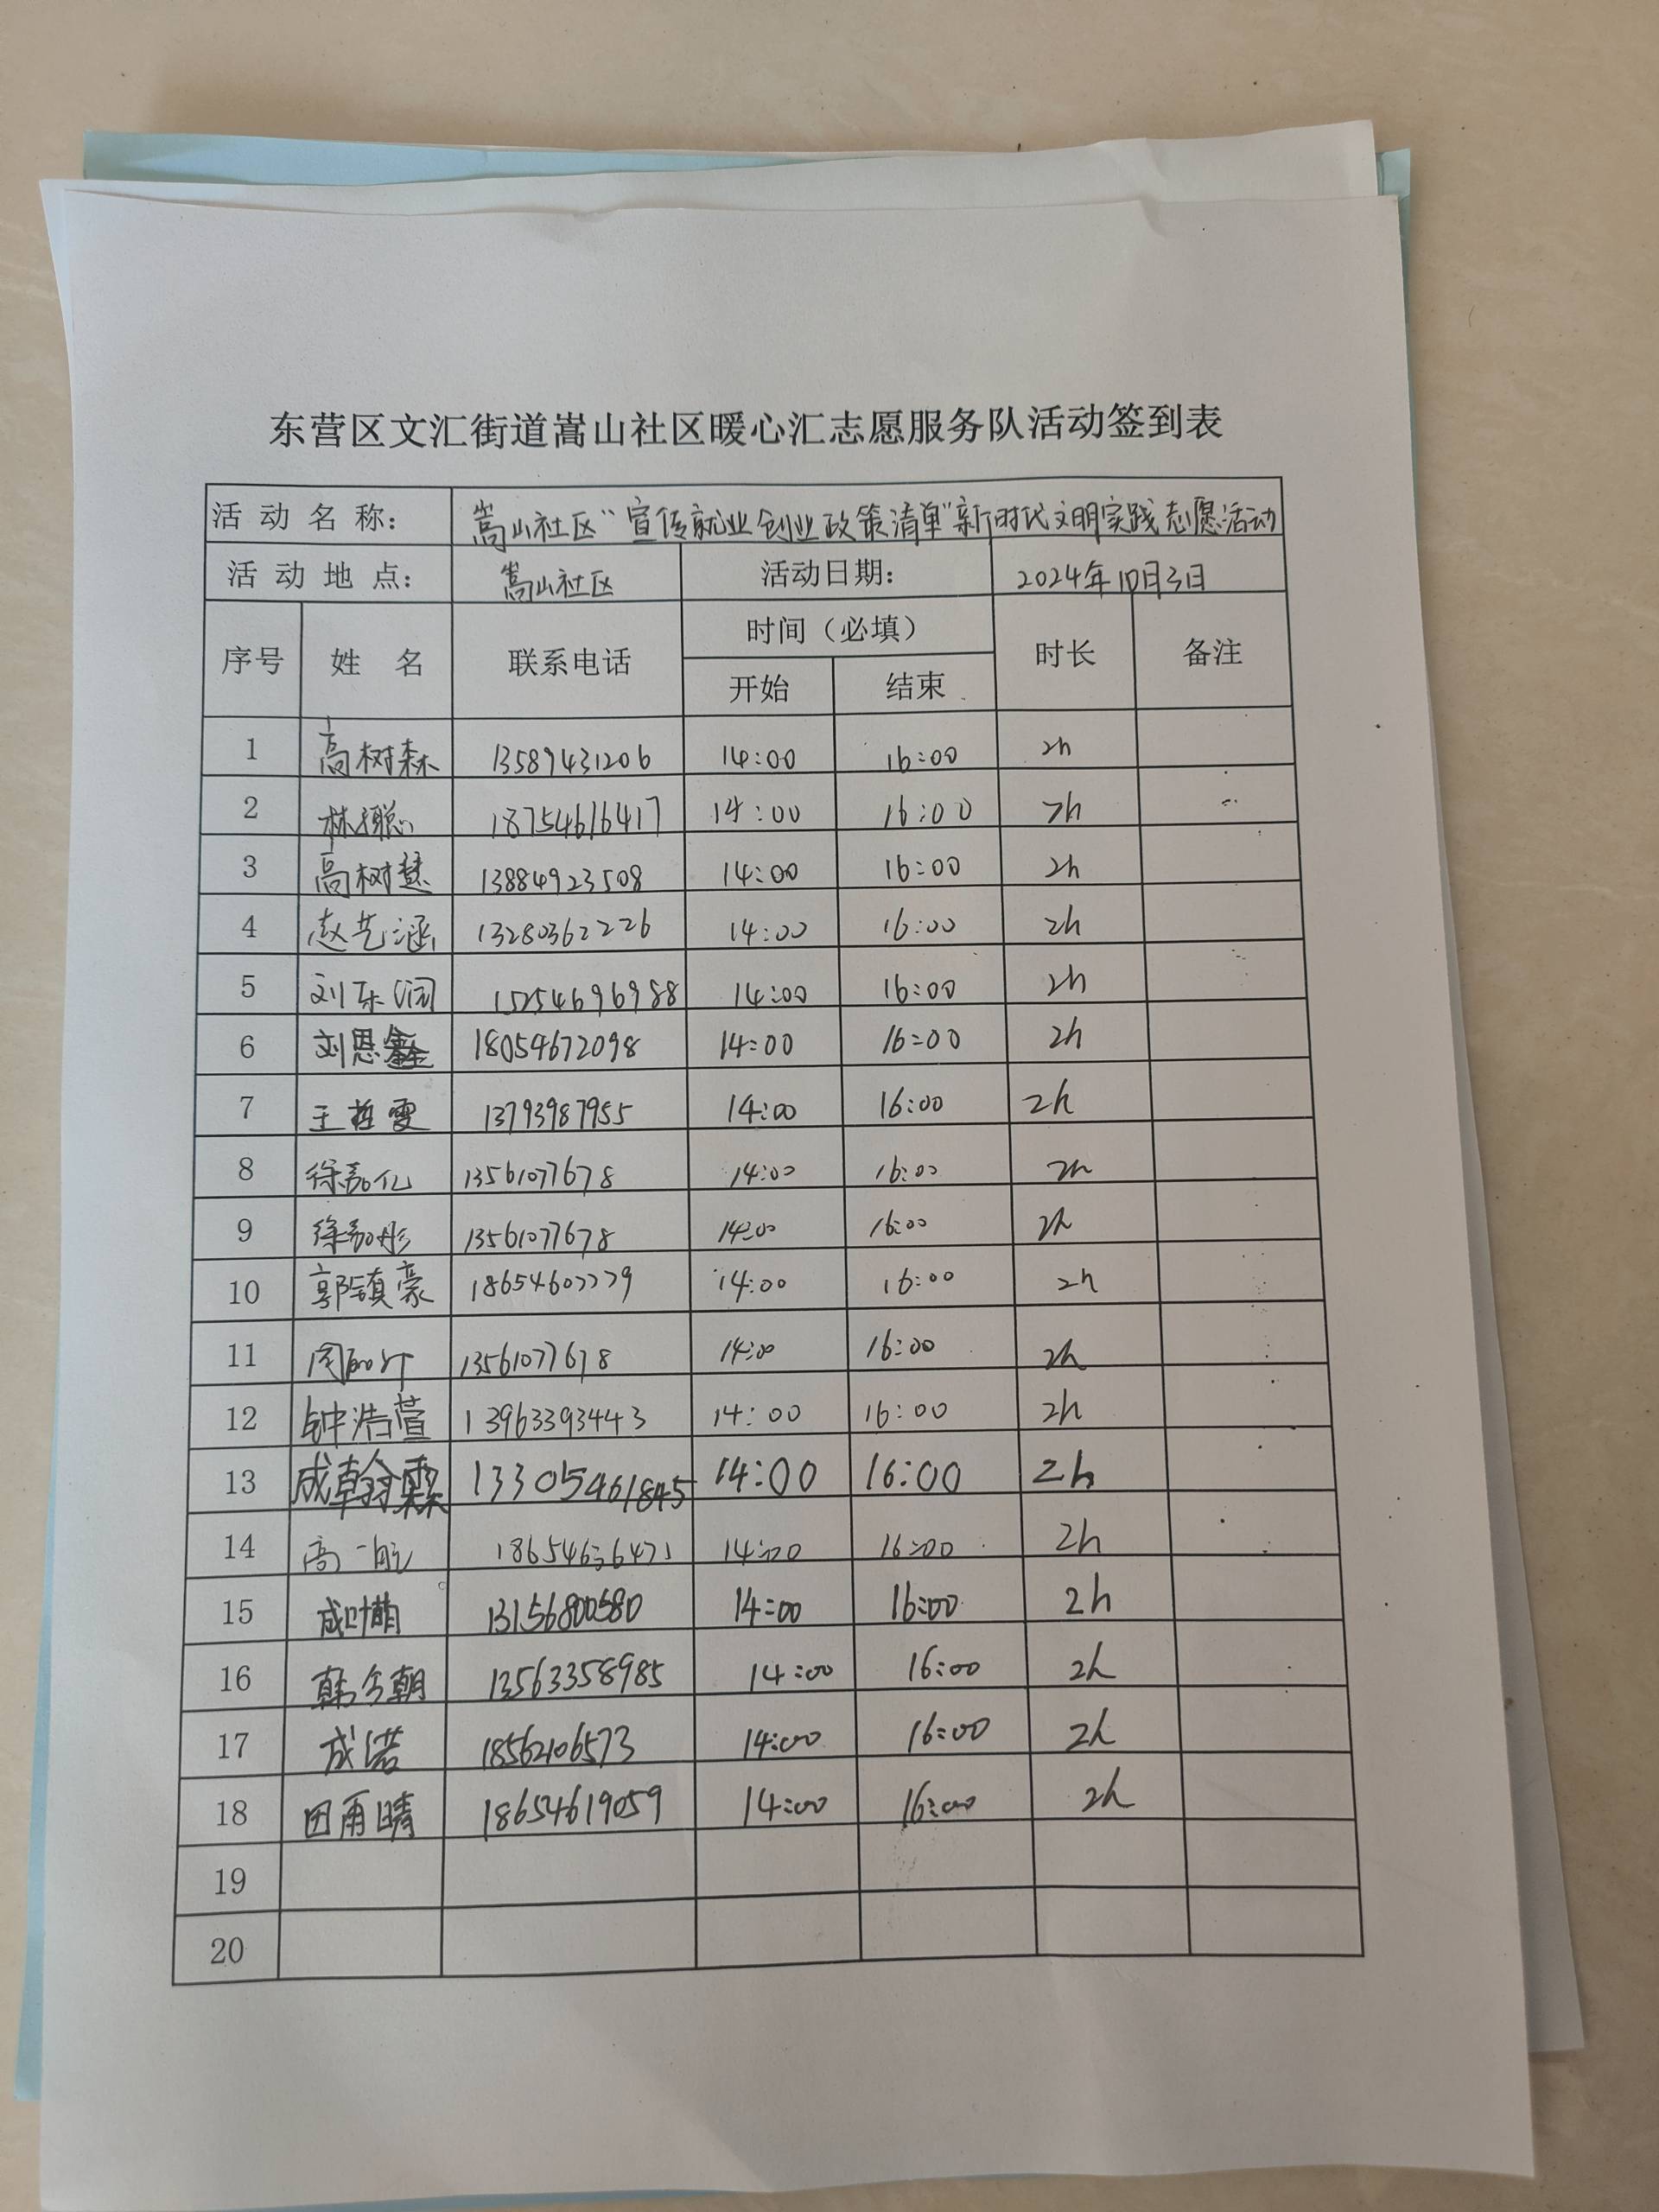 东营区文汇街道嵩山社区暖心汇志愿服务队活动签到表
活动名称： 嵩山社区“宣传就业创业政策清单”新时代文明实践志愿活动
活动地点： 嵩山社区 活动日期： 2024年10月3日
序号 姓名 联系电话 时间（必填） 时长 备注
开始 结束
1 高树森 13589431206 14:00 16:00 2h
2 林聪 18754616417 14:00 16:00 2h
3 高树慧 13884923508 14:00 16:00 2h
4 赵艺涵 13280362226 14:00 16:00 2h
5 刘东润 15254696988 14:00 16:00 2h
6 刘恩鑫 18054672098 14:00 16:00 2h
7 王哲雯 13793987955 14:00 16:00 2h
8 徐嘉亿 13561077678 14:00 16:00 2h
9 徐嘉彤 13561077678 14:00 16:00 2h
10 郭镇豪 14:00 16:00 2h
11 13561077678 14:00 16:00 2h
12 钟浩萱 13963393443 14:00 16:00 2h
13 成翰霖 13305461845 14:00 16:00 2h
14 高一航 14:00 16:00 2h
15 成叶萌 13156800580 14:00 16:00 2h
16 韩今朝 13563358985 14:00 16:00 2h
17 成诺 18562106573 14:00 16:00 2h
18 田雨晴 18654619059 14:00 16:00 2h
19
20